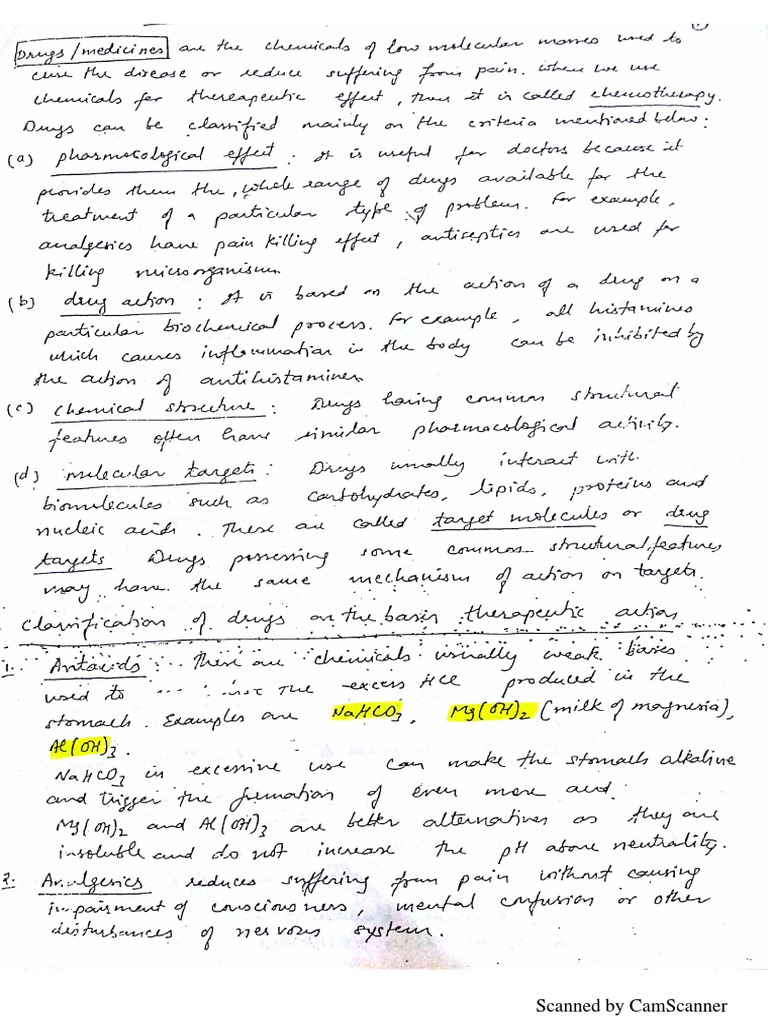 Drugs/medicines are the chemicals of low molecular masses used to
cure the disease or reduce suffering from pain. When we use
chemicals for thereapeutic effect, then it is called chemotherapy.
Drugs can be classified mainly on the criteria mentioned below:
(a) pharmacological effect : It is useful for doctors because it
provides them the, whole range of drugs available for the
treatment of a particular type of problem. For example,
analgesics have pain killing effect, antiseptics are used for
killing microorganism.
(b) drug action : It is based on the action of a drug on a
particular biochemical process. For example, all histamines
which causes inflammation in the body can be inhibited by
the action of antihistamines
(c) chemical structure : Drugs having common structural
features often have similar pharmacological activity.
(d) molecular targets : Drugs usually interact with
biomolecules such as carbohydrates, lipids, proteins and
nucleic acids. These are called target molecules or drug
targets Drugs possessing some common structural features
may have the same mechanism of action on targets.
Classification of drugs on the basis therapeutic action
1. Antacids : These are chemicals usually weak bases
used to the excess HCl produced in the
stomach. Examples are NaHCO3, Mg(OH)2 (milk of magnesia),
Al(OH)3.
NaHCO3 in excessive use can make the stomach alkaline
and trigger the formation of even more acid.
Mg(OH)2 and Al(OH)3 are better alternatives as they are
insoluble and do not increase the pH above neutrality.
2. Analgesics reduces suffering from pain without causing
impairment of consciousness, mental confusion or other
disturbances of nervous system.
Scanned by CamScanner